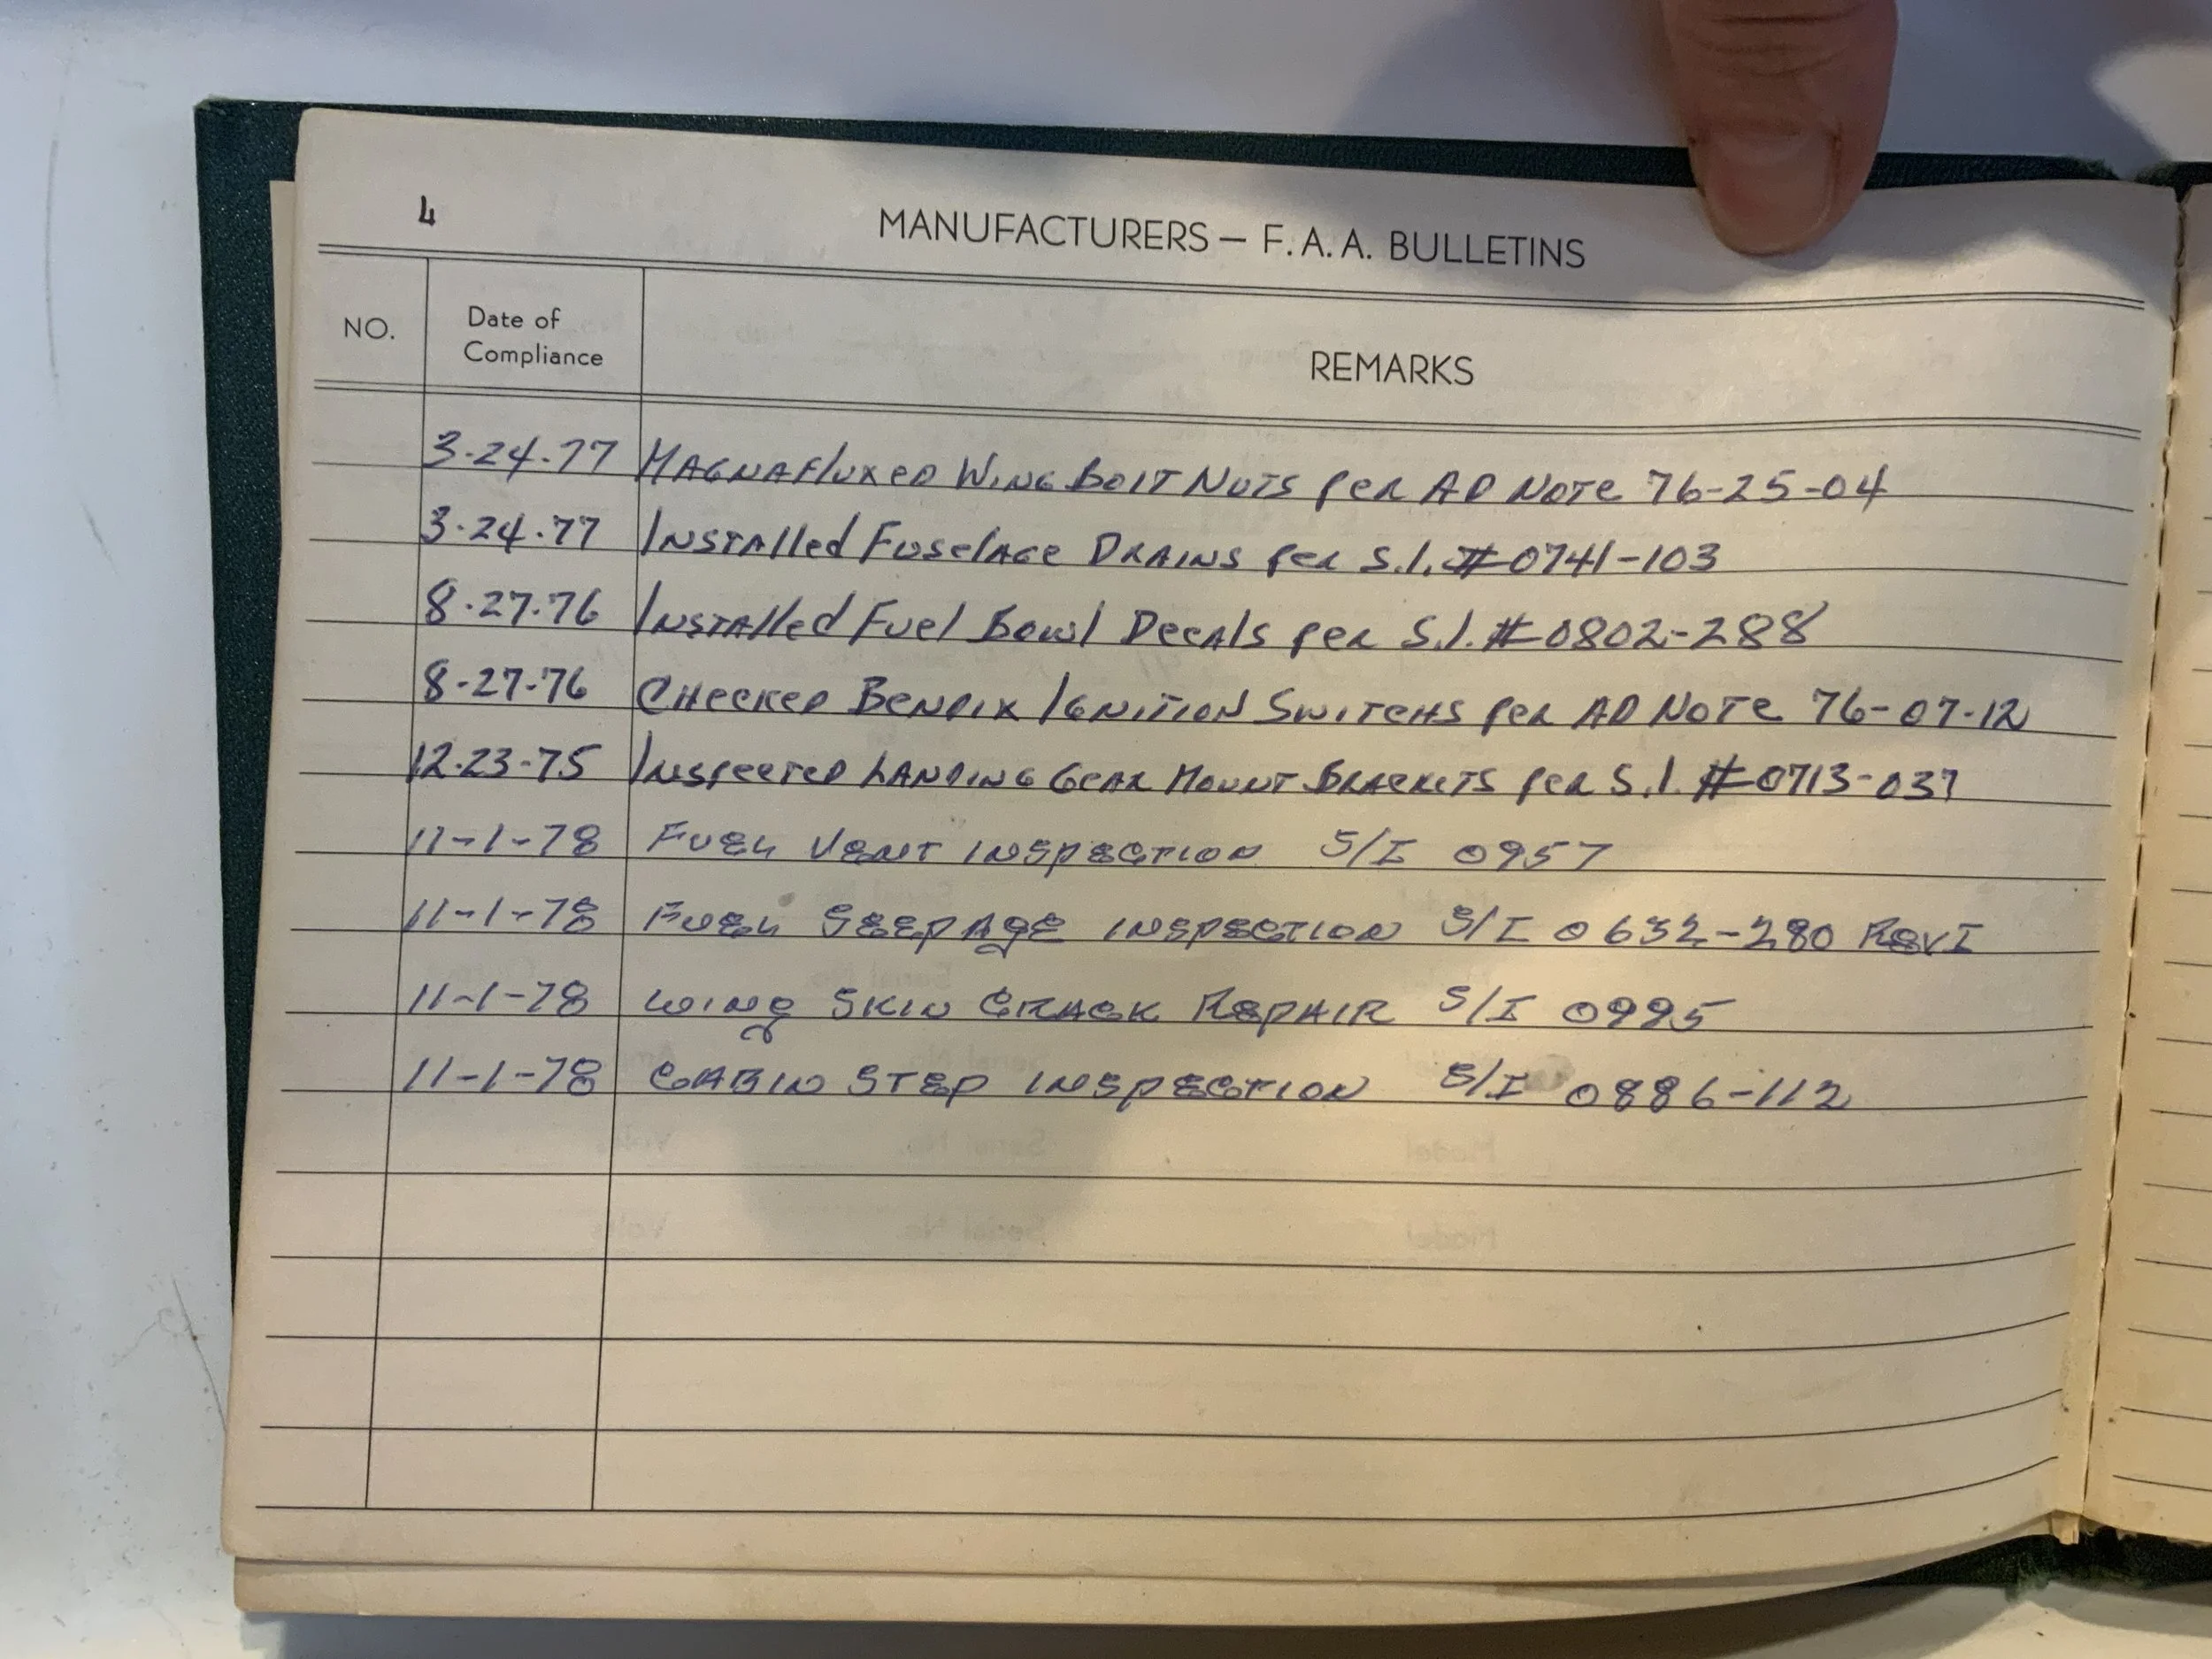 4
MANUFACTURERS — F. A. A. BULLETINS
NO. Date of Compliance REMARKS
3-24-77 MAGNAFluxed Wing Bolt Nuts per AD Note 76-25-04
3-24-77 Installed Fuselage Drains per S.I. # 0741-103
8-27-76 Installed Fuel Bowl Decals per S.I. # 0802-288
8-27-76 Checked Bendix Ignition Switchs per AD Note 76-07-12
12-23-75 Inspected Landing Gear Mount Brackets per S.I. # 0713-037
11-1-78 FUEL VENT INSPECTION S/I 0957
11-1-78 FUEL SEEPAGE INSPECTION S/I 0632-280 REV I
11-1-78 WING SKIN CRACK REPAIR S/I 0995
11-1-78 CABIN STEP INSPECTION S/I 0886-112